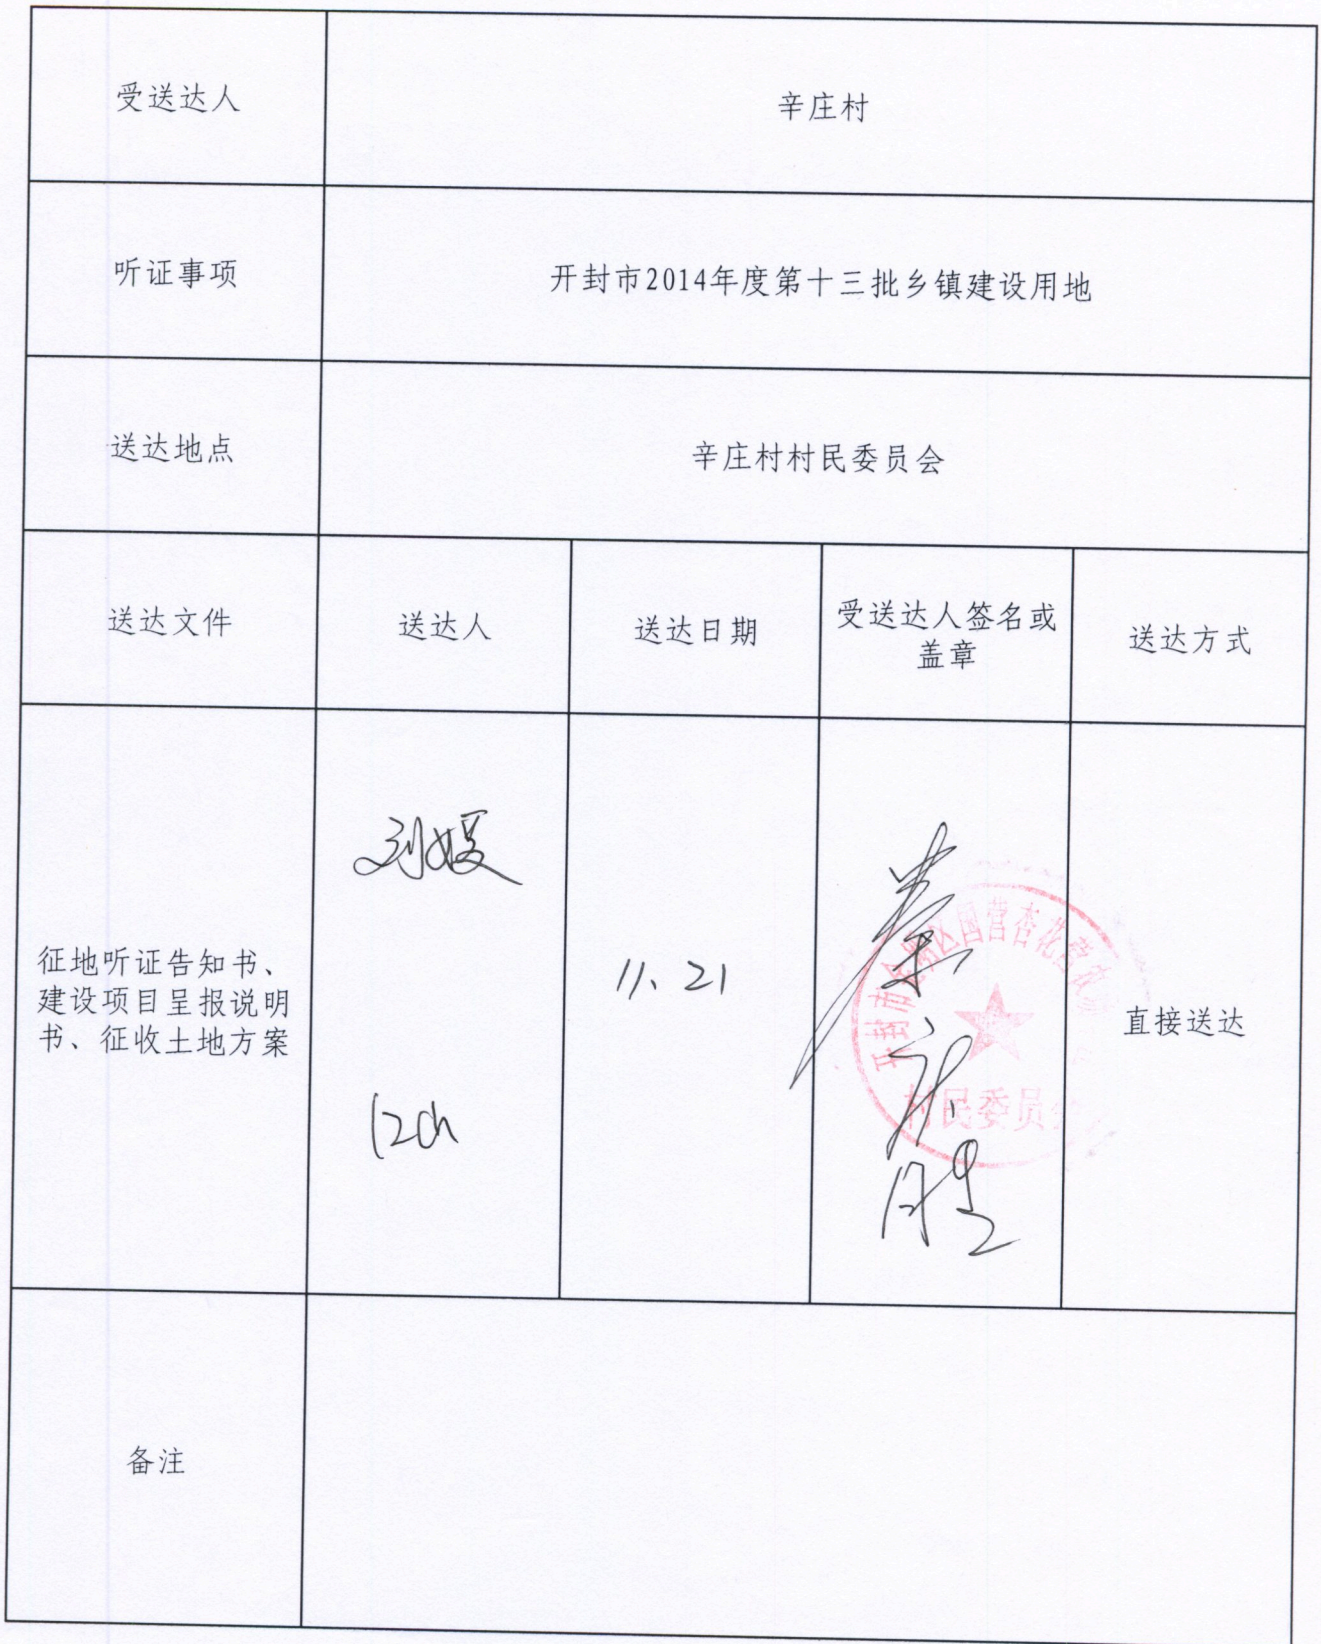 受送达人
辛庄村
听证事项
开封市2014年度第十三批乡镇建设用地
送达地点
辛庄村村民委员会
送达文件
送达人
送达日期
受送达人签名或
盖章
送达方式
征地听证告知书、
建设项目呈报说明
书、征收土地方案
刘媛
11、21
开封市 区国营杏花营农
村民委员会
直接送达
备注